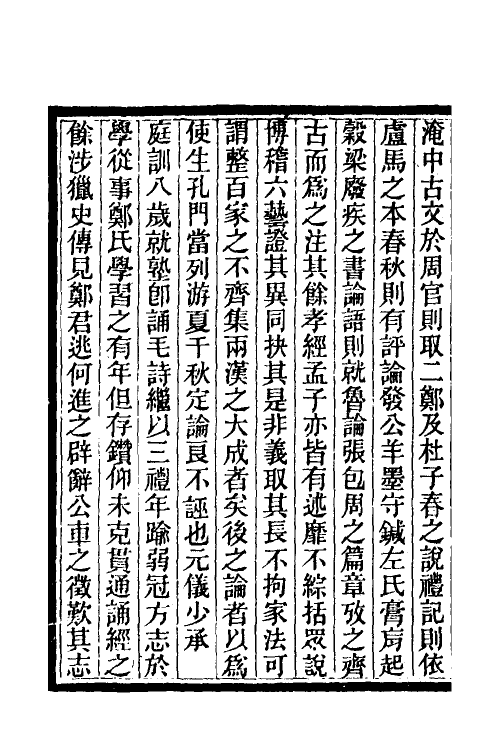 淹中古文於周官則取二鄭及杜子春之說禮記則依
盧馬之本春秋則有評論發公羊墨守鍼左氏膏肓起
穀梁廢疾之書論語則就魯論張包周之篇章攷之齊
古而爲之注其餘孝經孟子亦皆有述靡不綜括眾說
博稽六藝證其異同抉其是非義取其長不拘家法可
謂整百家之不齊集兩漢之大成者矣後之論者以爲
使生孔門當列游夏千秋定論良不誣也元儀少承
庭訓八歲就塾卽誦毛詩繼以三禮年踰弱冠方志於
學從事鄭氏學習之有年但存鑽仰未克貫通誦經之
餘涉獵史傳見鄭君逃何進之辟辭公車之徵歎其志